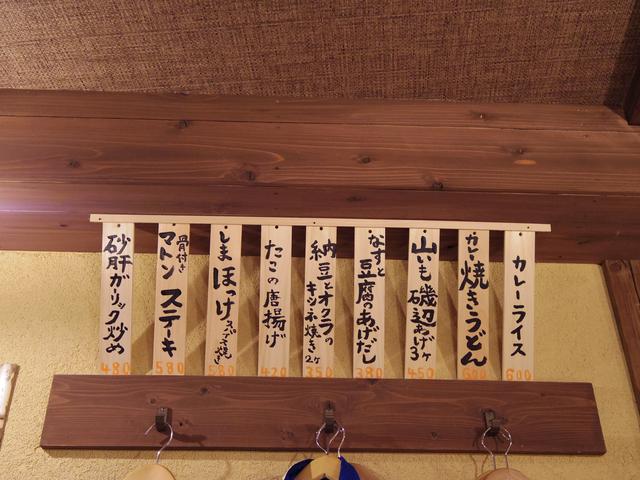 カレーライス
600
カレー焼きうどん
600
山いも
磯辺あげ
3ヶ
450
なすと
豆腐のあげだし
380
納豆とオクラの
キツネ焼き2ヶ
350
たこの唐揚げ
420
しまほっけ
580
骨付き
マトンステーキ
580
砂肝ガーリック炒め
480